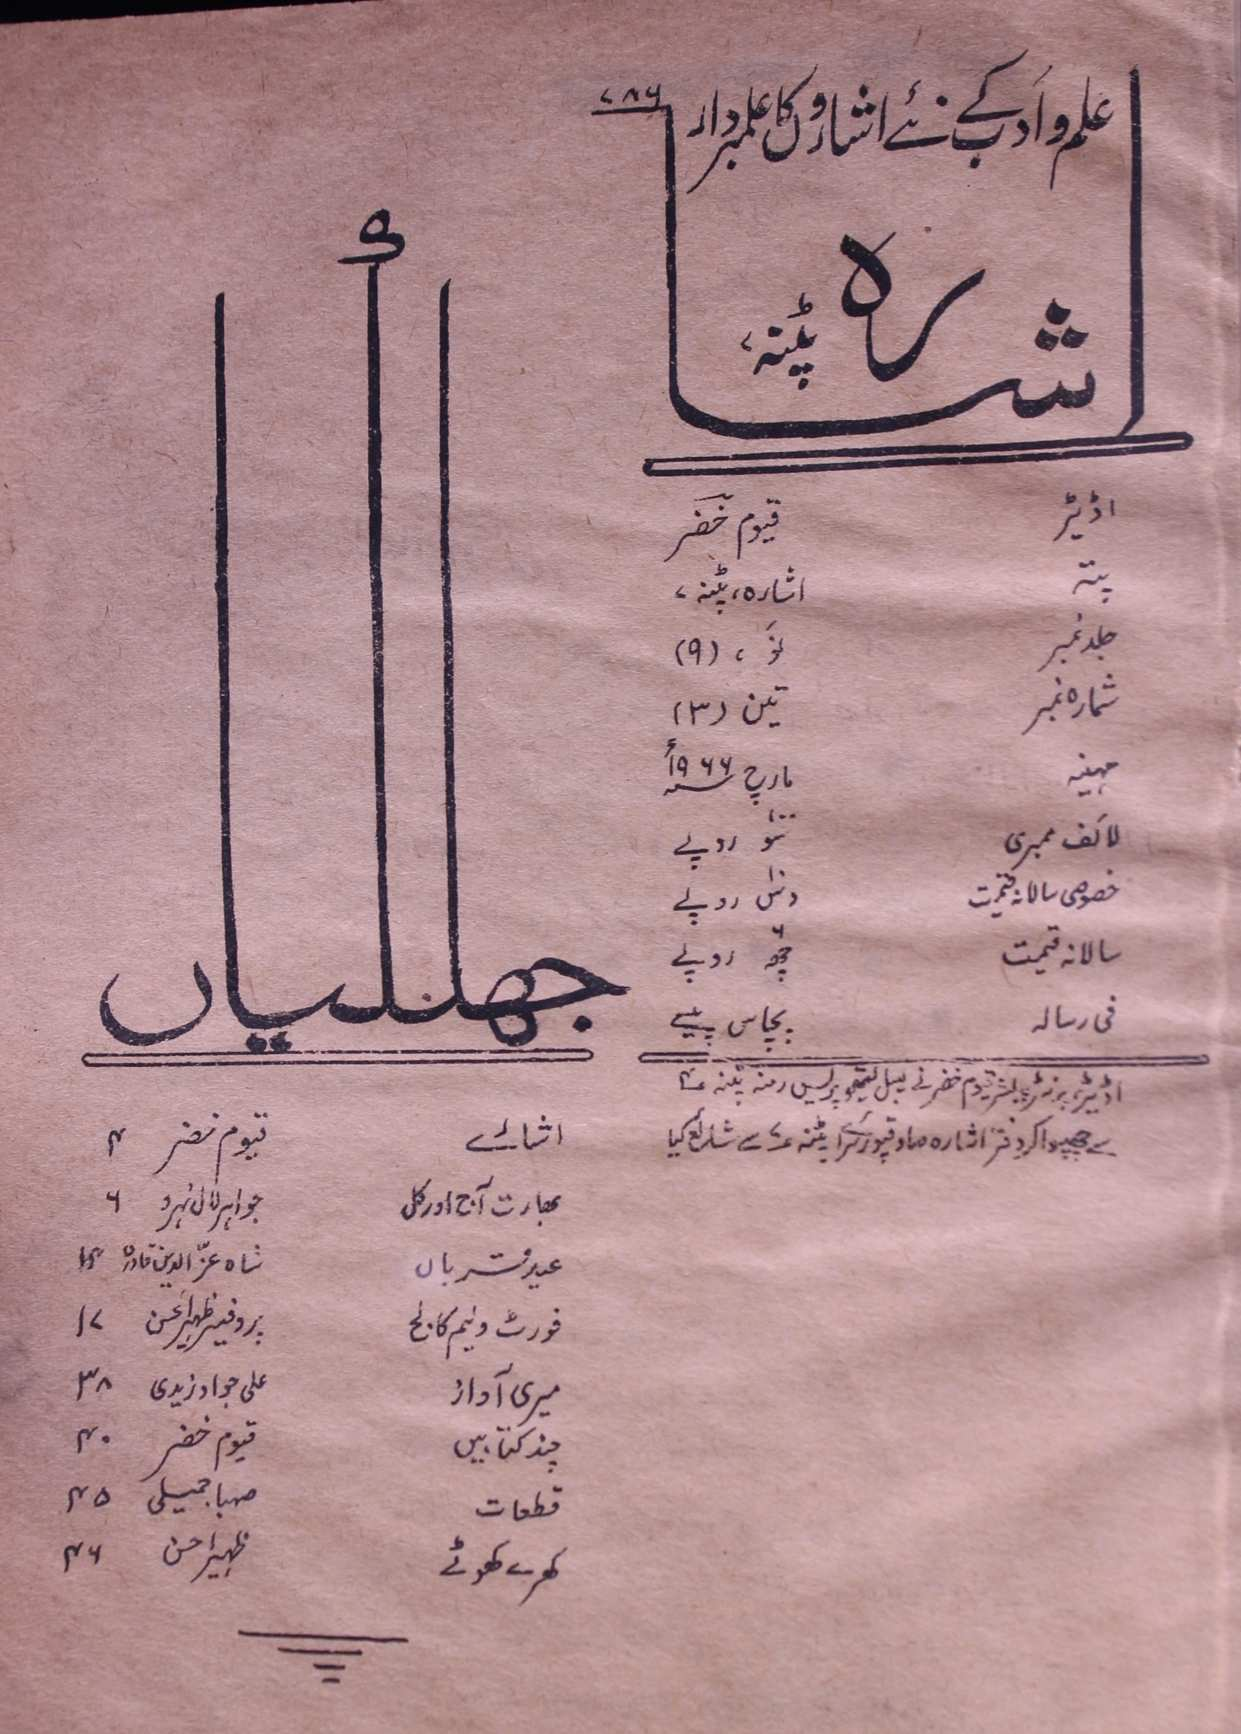 ۷۸۶
علم و ادب کے نئے اشاروں کا علمبردار
اشارہ
پٹنہ ۷
اڈیٹر قیوم خضر
پتہ اشارہ، پٹنہ ۷
جلد نمبر نو ، (۹)
شمارہ نمبر تین (۳)
مہینہ مارچ ۱۹۶۶ء
لائف ممبری سو روپے
خصوصی سالانہ قیمت دس روپے
سالانہ قیمت چھ روپے
فی رسالہ پچاس پیسے
اڈیٹر، پرنٹر پبلشر قیوم خضر نے لیبل لیتھو پریس رمنہ پٹنہ ۴
سے چھپوا کر دفتر اشارہ صادقپور پٹنہ ۷ سے شائع کیا
جھلکیاں
اشارے قیوم خضر ۴
بھارت آج اور کل جواہر لال نہرو ۶
عید قرباں شاہ عزّ الدین قادری ۱۴
فورٹ ولیم کالج پروفیسر ظہیر احسن ۱۷
میری آواز علی جواد زیدی ۳۸
چند کتابیں قیوم خضر ۴۰
قطعات صہبا جمیلی ۴۵
کھرے کھوٹے ظہیر احسن ۴۶